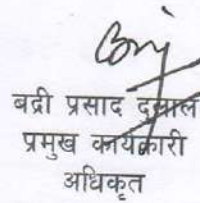 बद्री प्रसाद दाहाल
प्रमुख कार्यकारी
अधिकृत